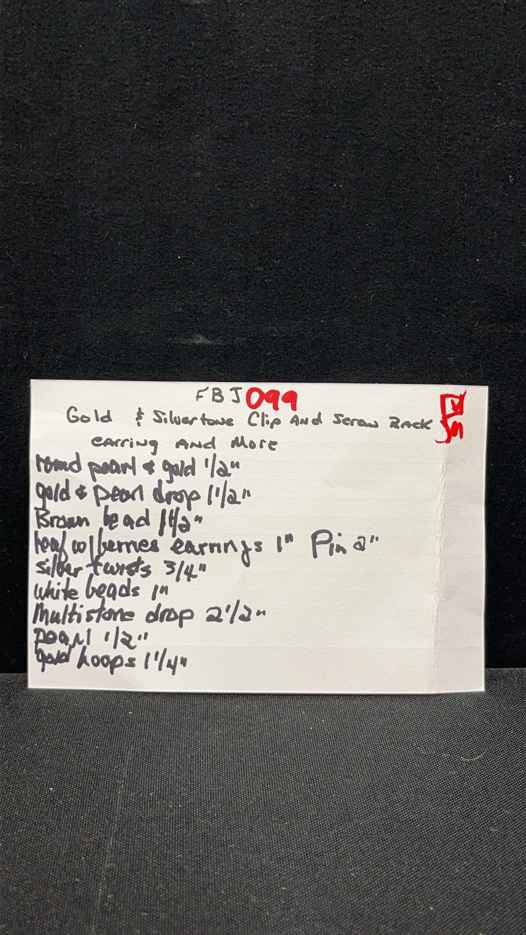 FBJ 099
Gold & Silvertone Clip And Screw Back
earring And More
round pearl & gold 1/2"
gold & pearl drop 1 1/2"
Brown bead 1 1/2"
leaf w/berries earrings 1" Pin 2"
silver twists 3/4"
white beads 1"
Multistone drop 2 1/2"
pearl 1/2"
gold hoops 1 1/4"